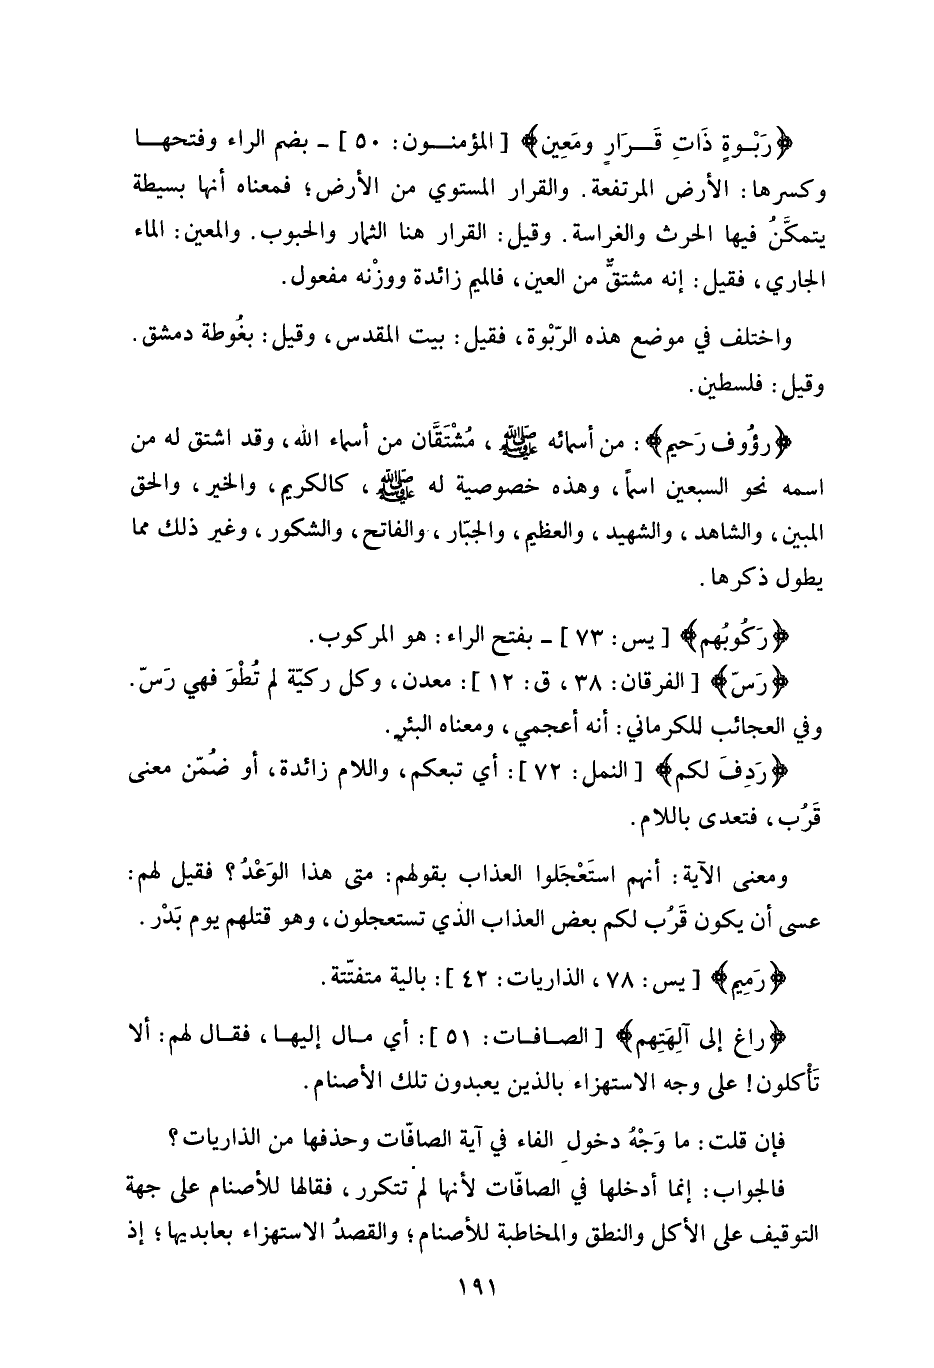 ﴿رَبْـوةٍ ذَاتِ قَـــرَارٍ ومَعِين﴾ [المؤمنــون: ٥٠] ـ بضم الراء وفتحهــا
وكسرها: الأرض المرتفعة. والقرار المستوي من الأرض؛ فمعناه أنها بسيطة
يتمكَّنُ فيها الحرث والغراسة. وقيل: القرار هنا الثمار والحبوب. والمعين: الماء
الجاري، فقيل: إنه مشتقٌّ من العين، فالميم زائدة ووزْنه مفعول.
واختلف في موضع هذه الرّبْوة، فقيل: بيت المقدس، وقيل: بغُوطة دمشق.
وقيل: فلسطين.
﴿رؤُوف رَحيم﴾: من أسمائه ﷺ، مُشْتَقَّان من أسماء الله، وقد اشتق له من
اسمه نحو السبعين اسماً، وهذه خصوصية له ﷺ، كالكريم، والخبر، والحق
المبين، والشاهد، والشهيد، والعظيم، والجبّار، والفاتح، والشكور، وغير ذلك مما
يطول ذكرها.
﴿رَكُوبُهم﴾ [يس: ٧٣] ـ بفتح الراء: هو المركوب.
﴿رَسّ﴾ [الفرقان: ٣٨، ق: ١٢]: معدن، وكل ركيّة لم تُطْوَ فهي رَسّ.
وفي العجائب للكرماني: أنه أعجمي، ومعناه البئر.
﴿رَدِفَ لكم﴾ [النمل: ٧٢]: أي تبعكم، واللام زائدة، أو ضُمّن معنى
قَرُب، فتعدى باللام.
ومعنى الآية: أنهم استَعْجَلوا العذاب بقولهم: متى هذا الوَعْدُ؟ فقيل لهم:
عسى أن يكون قَرُب لكم بعض العذاب الذي تستعجلون، وهو قتلهم يوم بَدْر.
﴿رَمِيم﴾ [يس: ٧٨، الذاريات: ٤٢]: بالية متفتّتة.
﴿راغ إلى آلِهَتِهم﴾ [الصـافـات: ٥١]: أي مـال إليهـا، فقـال لهم: ألا
تَأْكلون! على وجه الاستهزاء بالذين يعبدون تلك الأصنام.
فإن قلت: ما وَجْهُ دخول الفاء في آية الصافّات وحذفها من الذاريات؟
فالجواب: إنما أدخلها في الصافّات لأنها لم تتكرر، فقالها للأصنام على جهة
التوقيف على الأكل والنطق والمخاطبة للأصنام؛ والقصدُ الاستهزاء بعابديها؛ إذ
١٩١